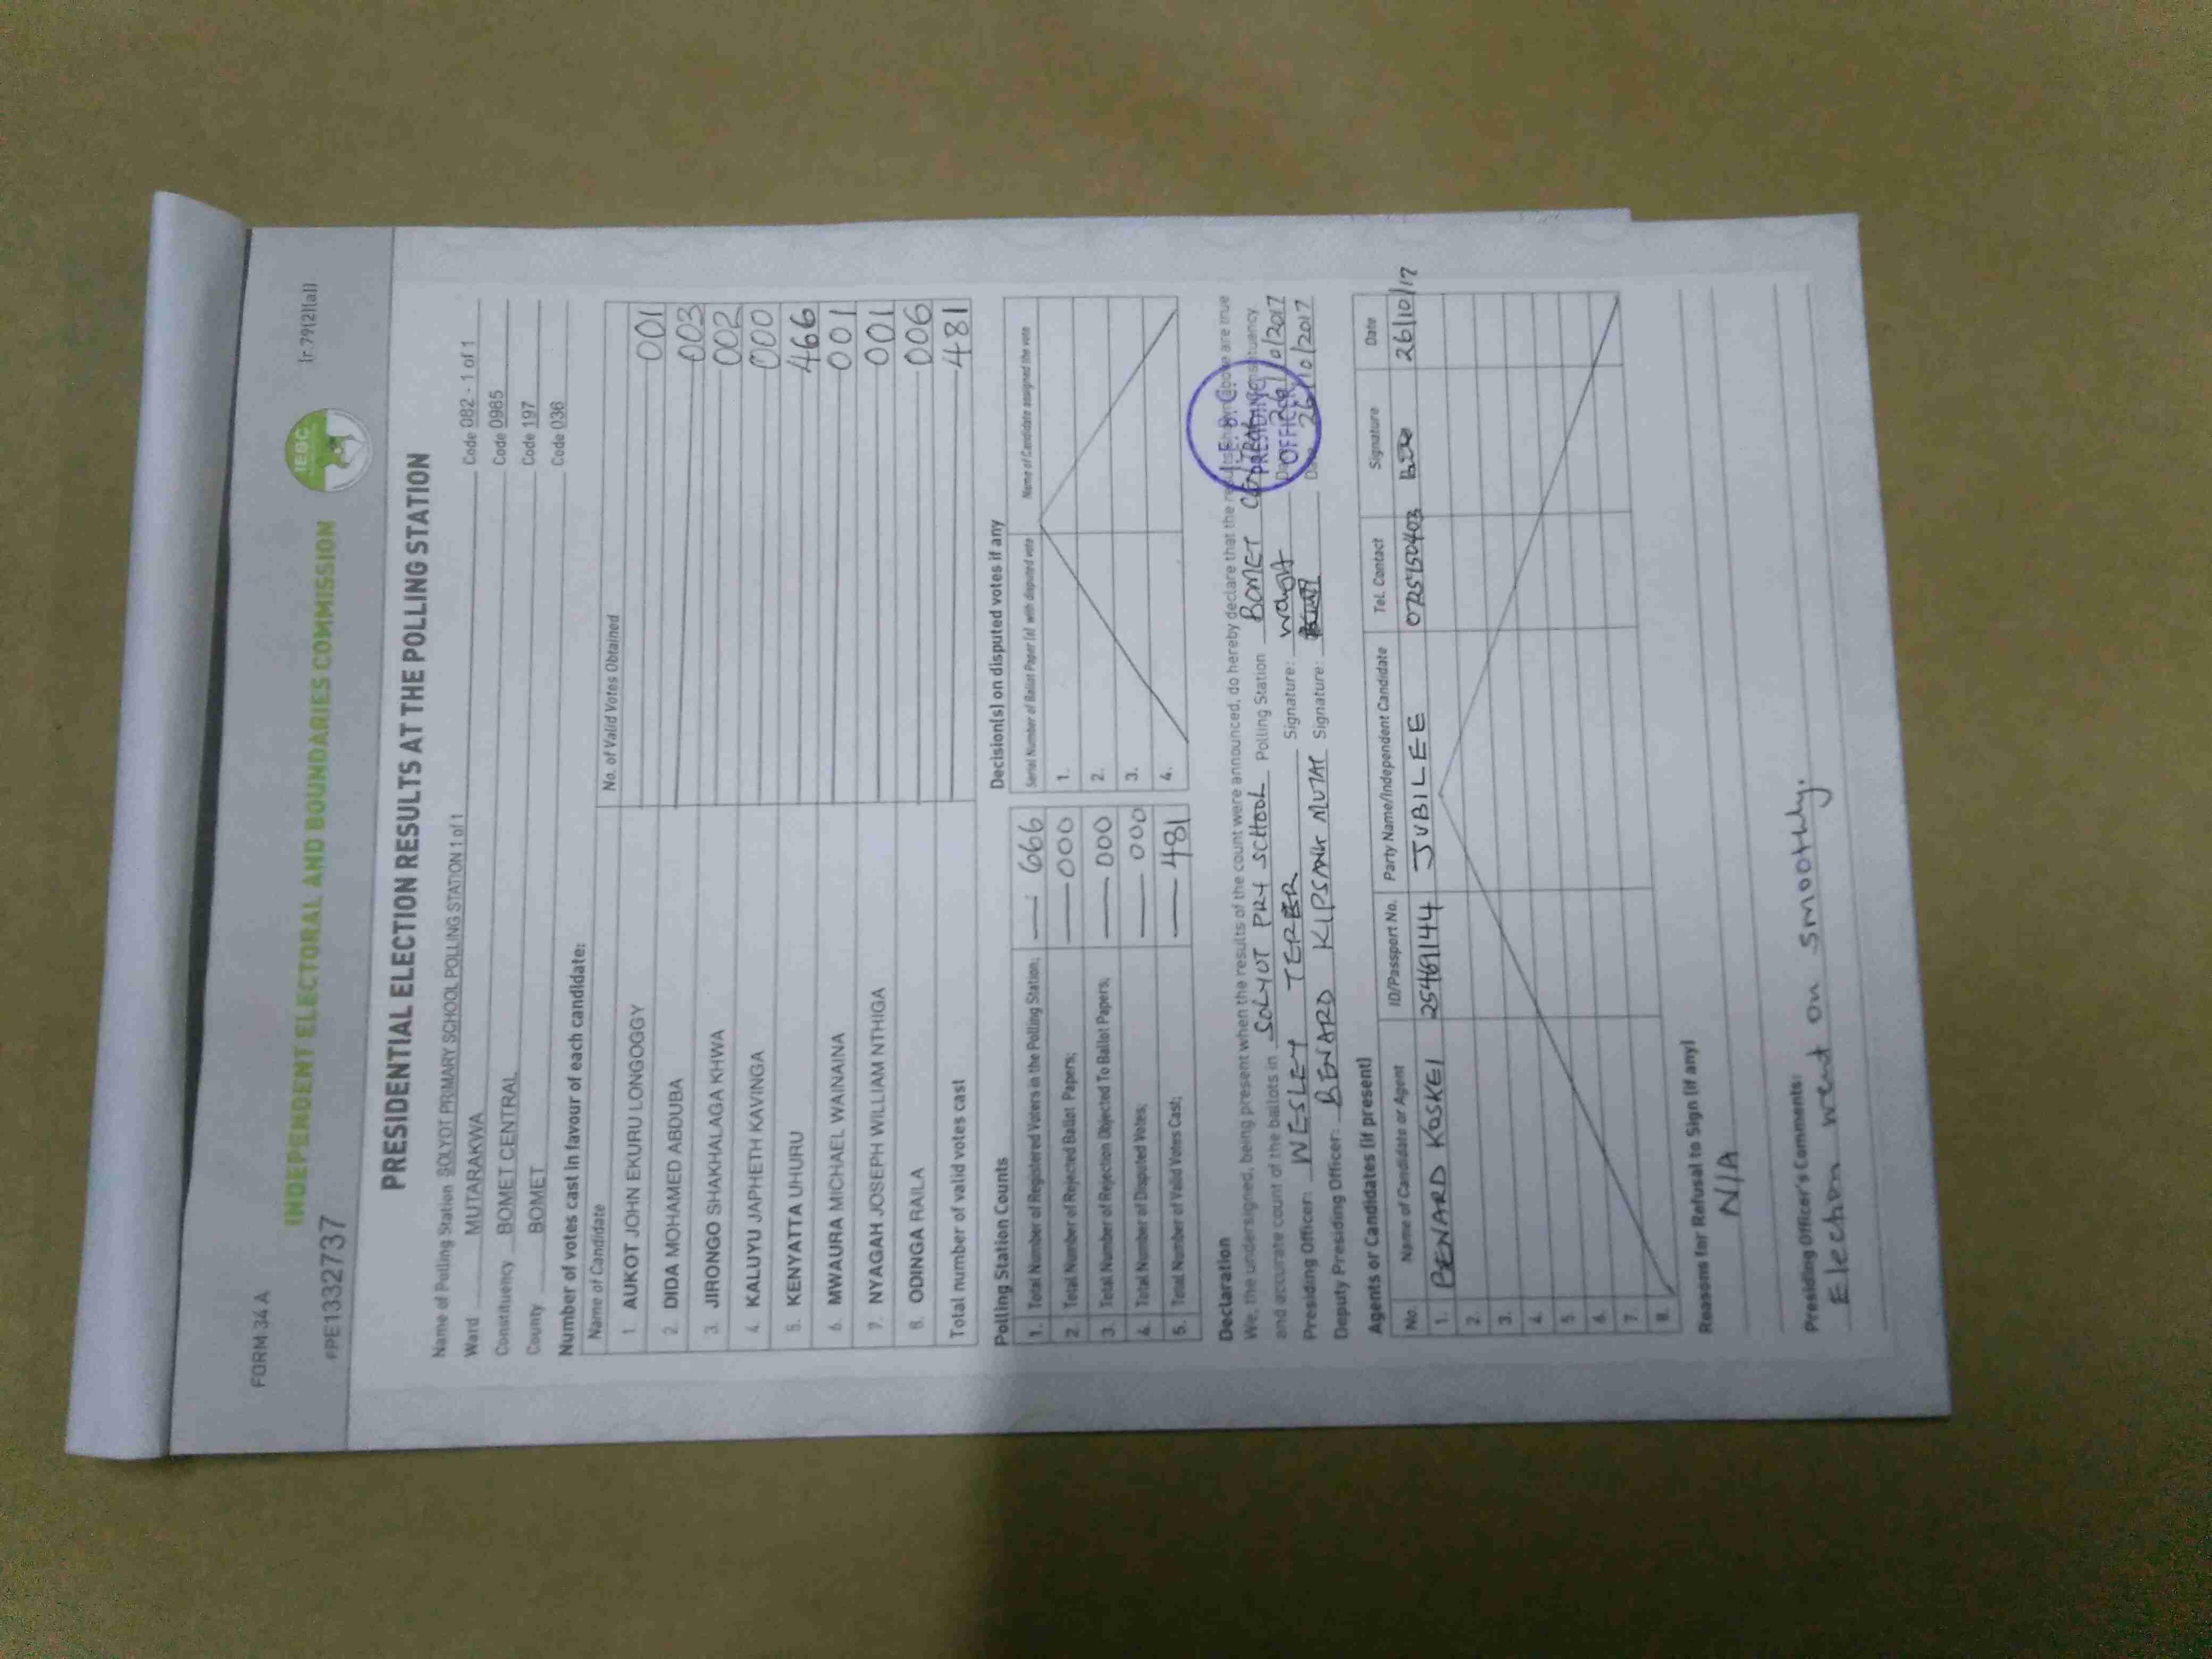 FORM 34 A
PPE1332737
INDEPENDENT ELECTORAL AND BOUNDARIES COMMISSION
IEBC
(r.79(2)(a))
PRESIDENTIAL ELECTION RESULTS AT THE POLLING STATION
Name of Polling Station SOLYOT PRIMARY SCHOOL POLLING STATION 1 of 1 Code 082 - 1 of 1
Ward MUTARAKWA Code 0985
Constituency BOMET CENTRAL Code 197
County BOMET Code 036
Number of votes cast in favour of each candidate:
Name of Candidate No. of Valid Votes Obtained
1. AUKOT JOHN EKURU LONGOGGY 001
2. DIDA MOHAMED ABDUBA 003
3. JIRONGO SHAKHALAGA KHWA 002
4. KALUYU JAPHETH KAVINGA 000
5. KENYATTA UHURU 466
6. MWAURA MICHAEL WAINAINA 001
7. NYAGAH JOSEPH WILLIAM NTHIGA 001
8. ODINGA RAILA 006
Total number of valid votes cast 481
Polling Station Counts
1. Total Number of Registered Voters in the Polling Station; 666
2. Total Number of Rejected Ballot Papers; 000
3. Total Number of Rejection Objected To Ballot Papers; 000
4. Total Number of Disputed Votes; 000
5. Total Number of Valid Votes Cast; 481
Decision(s) on disputed votes if any
Serial Number of Ballot Paper (s) with disputed vote Name of Candidate assigned the vote
1.
2.
3.
4.
Declaration
We, the undersigned, being present when the results of the count were announced, do hereby declare that the results shown above are true
and accurate count of the ballots in SOLYOT PRY SCHOOL Polling Station BOMET CENTRAL Constituency.
Presiding Officer: WESLEY TERER Signature: Date 26/10/2017
Deputy Presiding Officer: BENARD KIPSANK MUTAI Signature: Date 26/10/2017
I.E.B.C.
PRESIDING
OFFICER
Agents or Candidates (if present)
No. Name of Candidate or Agent ID/Passport No. Party Name/Independent Candidate Tel. Contact Signature Date
1. BENARD KOSKEI 25469144 JUBILEE 0725950403 26/10/17
2.
3.
4.
5.
6.
7.
8.
Reasons for Refusal to Sign (if any)
N/A
Presiding Officer's Comments:
Election went on smoothly.